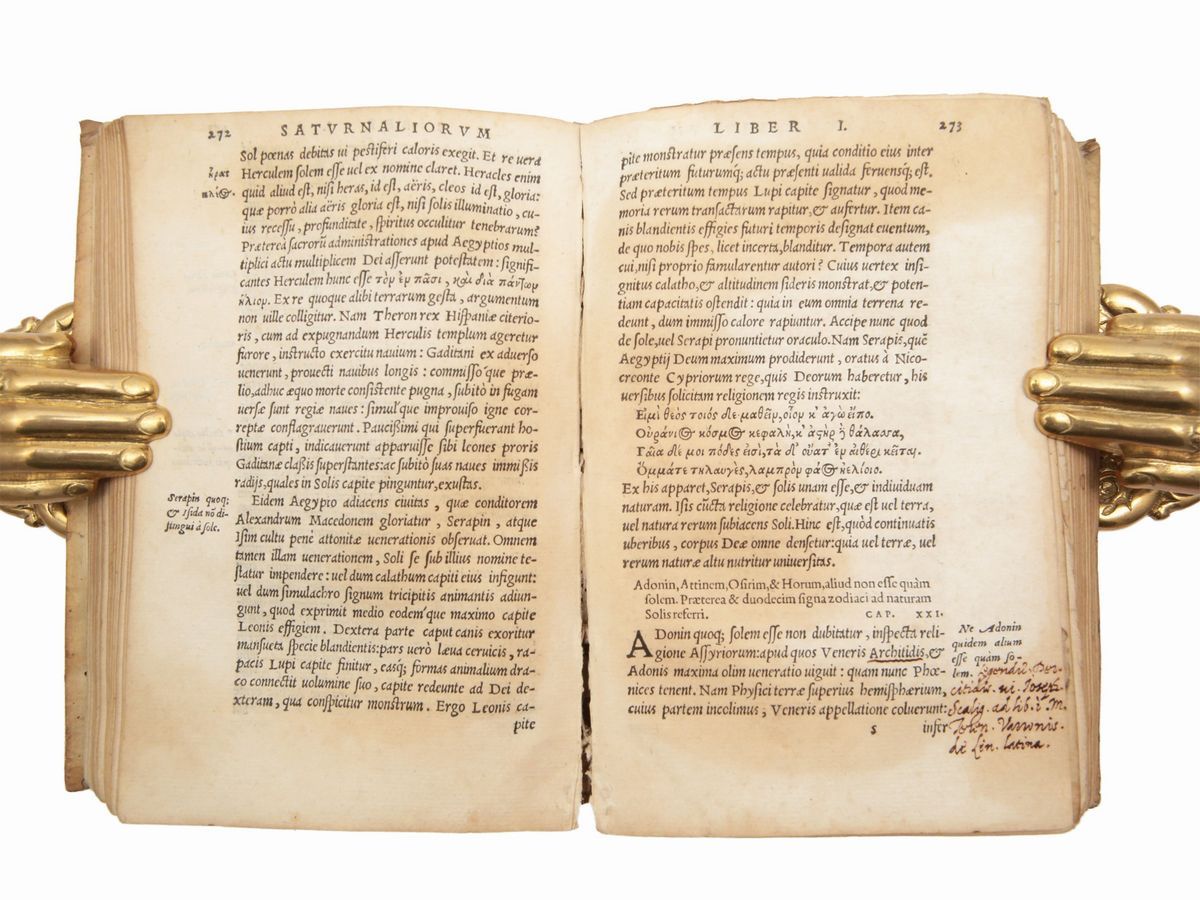 272 SATVRNALIORVM
Sol pœnas debitas ui pestiferi caloris exegit. Et re uera
Herculem solem esse uel ex nomine claret. Heracles enim
quid aliud est, nisi heras, id est, aëris, cleos id est, gloria:
quæ porrò alia aëris gloria est, nisi solis illuminatio, cu-
ius recessu, profunditate, spiritus occulitur tenebrarum?
Præterea sacrorū administrationes apud Aegyptios mul-
tiplici actu multiplicem Dei asserunt potestatem: signifi-
cantes Herculem hunc esse τὸν ἐν πᾶσι, καὶ διὰ πάντων
ἥλιον. Ex re quoque alibi terrarum gesta, argumentum
non uile colligitur. Nam Theron rex Hispaniæ citerio-
ris, cum ad expugnandum Herculis templum ageretur
furore, instructo exercitu nauium: Gaditani ex aduerso
uenerunt, prouecti nauibus longis: commisso´que præ-
lio, adhuc æquo morte consistente pugna, subitò in fugam
uersæ sunt regiæ naues: simul´que improuiso igne cor-
reptæ conflagrauerunt. Paucissimi qui superfuerant ho-
stium capti, indicauerunt apparuisse sibi leones proris
Gaditanæ classis superstantes: ac subitò suas naues immissis
radijs, quales in Solis capite pinguntur, exustas.
Serapin quoq;
& Isida nō di-
iungui à sole.
Eidem Aegypto adiacens ciuitas, quæ conditorem
Alexandrum Macedonem gloriatur, Serapin, atque
Isim cultu penè attonitæ uenerationis obseruat. Omnem
tamen illam uenerationem, Soli se sub illius nomine te-
statur impendere: uel dum calathum capiti eius infigunt:
uel dum simulachro signum tricipitis animantis adiun-
gunt, quod exprimit medio eodem´que maximo capite
Leonis effigiem. Dextera parte caput canis exoritur
mansueta specie blandientis: pars uerò læua ceruicis, ra-
pacis Lupi capite finitur, easq; formas animalium dra-
co connectit uolumine suo, capite redeunte ad Dei de-
xteram, qua conspicitur monstrum. Ergo Leonis ca-
pite
LIBER I. 273
pite monstratur præsens tempus, quia conditio eius inter
præteritum futurumq́; actu præsenti ualida feruensq́, est.
Sed præteritum tempus Lupi capite signatur, quod me-
moria rerum transactarum rapitur, & aufertur. Item ca-
nis blandientis effigies futuri temporis designat euentum,
de quo nobis spes, licet incerta, blanditur. Tempora autem
cui, nisi proprio famularentur autori? Cuius uertex insi-
gnitus calatho, & altitudinem sideris monstrat, & poten-
tiam capacitatis ostendit: quia in eum omnia terrena re-
deunt, dum immisso calore rapiuntur. Accipe nunc quod
de sole, uel Serapi pronuntietur oraculo. Nam Serapis, quē
Aegyptij Deum maximum prodiderunt, oratus à Nico-
creonte Cypriorum rege, quis Deorum haberetur, his
uersibus solicitam religionem regis instruxit:
Εἰμὶ θεὸς τοιός δε μαθεῖν, οἷον κ᾽ ἀγὼ εἴπο.
Οὐράνιος κόσμος κεφαλὴ, κ᾽ ἀσὴρ ἢ θάλασσα,
Γαῖα δέ μοι πόδες εἰσὶ, τὰ δ᾽ οὔατ᾽ ἐν αἰθέρι κεῖται.
Ὄμματε τηλαυγὲς, λαμπρὸν φάος ἠελίοιο.
Ex his apparet, Serapis, & solis unam esse, & indiuiduam
naturam. Isis cūcta religione celebratur, quæ est uel terra,
uel natura rerum subiacens Soli. Hinc est, quòd continuatis
uberibus, corpus Deæ omne densetur: quia uel terræ, uel
rerum naturæ altu nutritur uniuersitas.
Adonin, Attinem, Osirim, & Horum, aliud non esse quàm
solem. Præterea & duodecim signa zodiaci ad naturam
Solis referri. CAP. XXI.
ADonin quoq; solem esse non dubitatur, inspecta reli-
gione Assyriorum: apud quos Veneris Architidis, &
Adonis maxima olim ueneratio uiguit: quam nunc Phœ-
nices tenent. Nam Physici terræ superius hemisphærium,
cuius partem incolimus, Veneris appellatione coluerunt:
s infer
Ne Adonin
quidem alium
esse quàm so-
lem.
ui. Joseph.
Scalig. ad lib. M.
Teren. Varronis.
de Lin. latina.